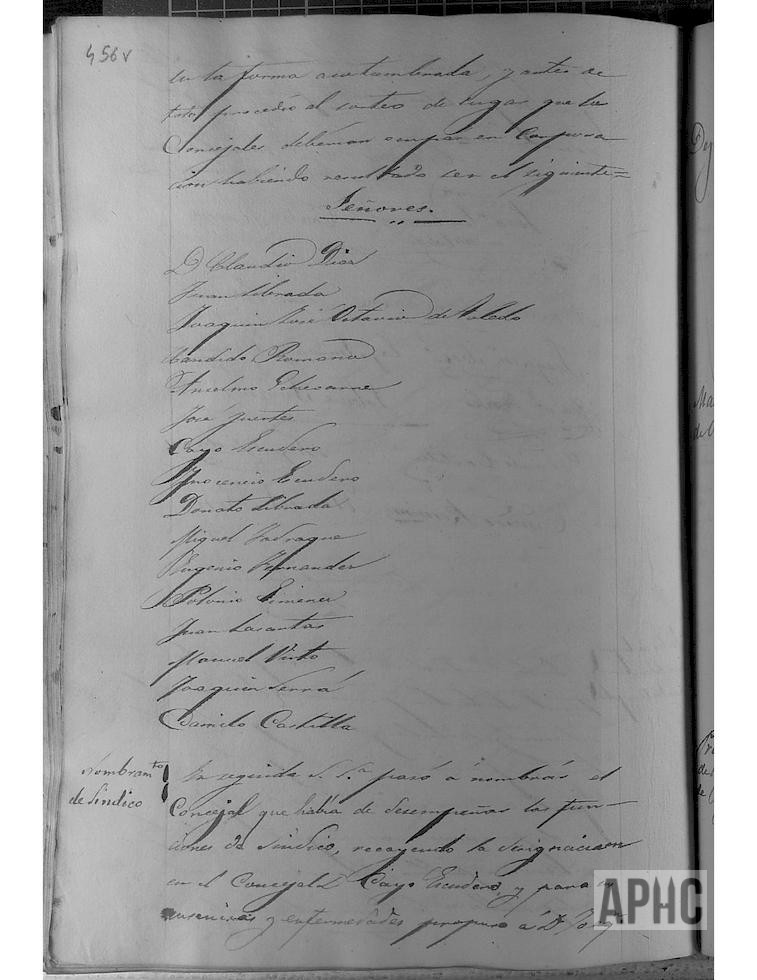 456v
en la forma acostumbrada, y antes de
esto procedió al sorteo de lugar que los
Concejales deberían ocupar en Corpora
cion habiendo resultado ser el siguiente=
Señores.
D. Claudio Dias
Juan Librada
Joaquin José Octavio de Toledo
Candido Romano
Anselmo Echesarne
José Fuertes
Cayo Escudero
Inocencio Escudero
Donato Librada
Miguel Jadraque
Eugenio Hernandez
Polonio Gimenez
Juan Lasantas
Manuel Pinto
Joaquin Serrá
Camilo Castilla
Nombramto
de Síndico
En seguida S. Sa. pasó á nombrar el
Concejal que había de desempeñar las fun-
ciones de Síndico, recayendo la designacion
en el Concejal D. Cayo Escudero, y para
ausencias y enfermedades propuso á D.
APHC